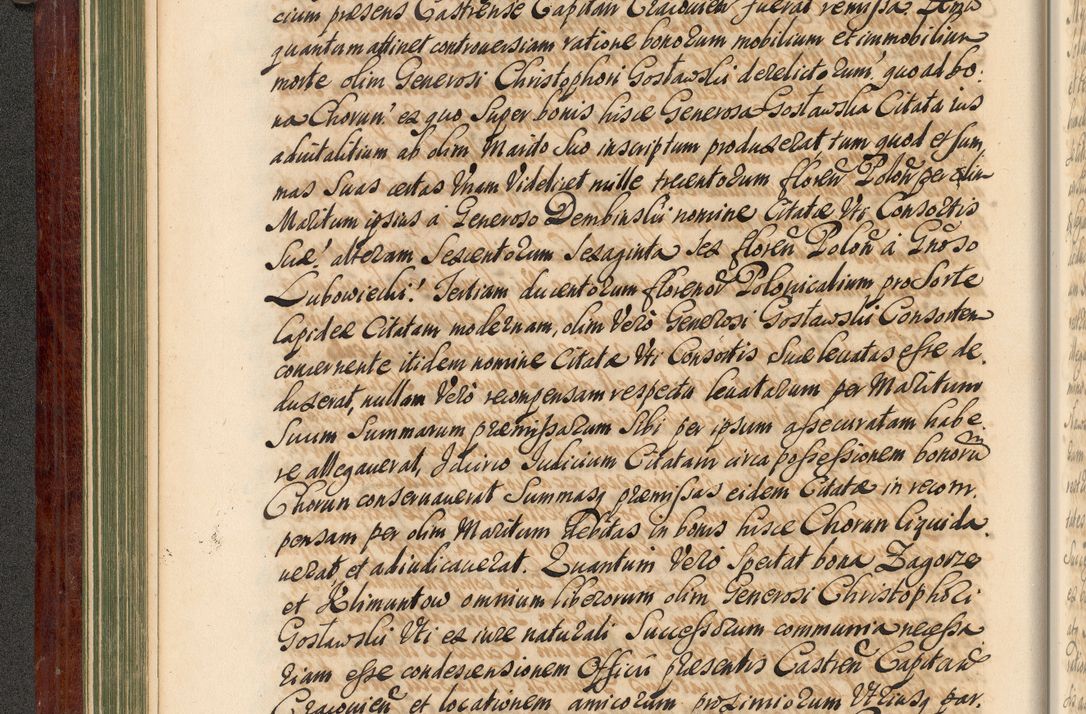 cium præsens Castrense Capitan Cracovien fuerat remissa
quantam attinet controversiam ratione bonorum mobilium et immobilium
morte olim Generosi Christophori Gosławski derelictorum, quo ad bo:
na Chorun ex quo super bonis hisce Generosa Gosławska Citata ius
advitalitium ab olim Marito suo inscriptum produxerat tum quod et sum
mas suas certas Unam Videlicet mille trecentorum floren Polon per olim
Maritum ipsius á Generoso Dembinski nomine Citatæ Uti Consortis
Suæ, alteram Sexcentorum Sexaginta sex floren Polon á Gnoso
Lubowiecki, Tertiam ducentorum florenor Polonicalium pro sorte
lapideæ Citatam modernam, olim Vero Generosi Gosławski Consortem
concernente itidem nomine Citatæ Uti Consortis Suæ levatas esse de,
duxerat, nullam Vero recompensam respectu levatarum per Maritum
Suum Summarum præmissarum Sibi per ipsum assecuratam habe,
re allegaverat, Idcirco Judicium Citatam circa possessionem bonorum
Chorun conservaverat Summasq præmissas eidem Citatæ in recom,
pensam per olim Maritum debitas in bonis hisce Chorun liquida,
verat, et adiudicaverat. Quantum Vero Spectat bona Zagorze
et Klimuntow omnium liberorum olim Generosi Christophori
Gosławski Uti ex iure naturali Successorum communia necessa
riam esse condescensionem Officii præsentis Castren Capitan
Cracovien et locationem amicorum proximiorum Utriusq par,